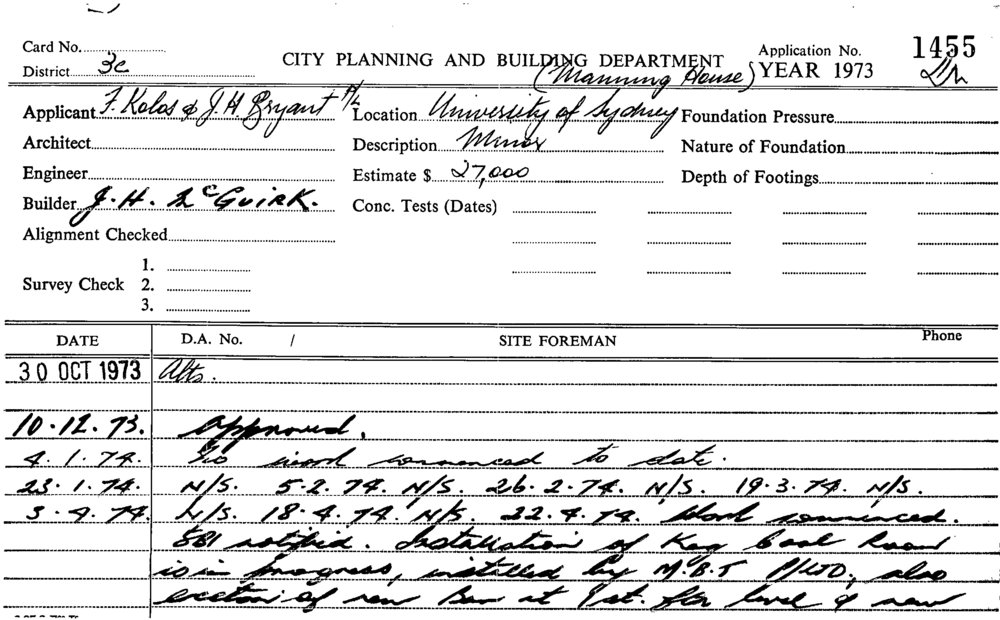 Card No.
District 3c
CITY PLANNING AND BUILDING DEPARTMENT
(Manning House)
Application No. 1455
YEAR 1973
Applicant F. Kolos & J. H. Bryant P/L
Location University of Sydney
Foundation Pressure
Architect
Description Minor
Nature of Foundation
Engineer
Estimate $ 27,000
Depth of Footings
Builder J. H. McGuirk.
Conc. Tests (Dates)
Alignment Checked
Survey Check 1.
2.
3.
DATE D.A. No. / SITE FOREMAN Phone
30 OCT 1973 Alts.
10.12.73. Approved.
4.1.74. No work commenced to date.
23.1.74. N/S. 5.2.74. N/S. 26.2.74. N/S. 19.3.74. N/S.
3.4.74. N/S. 18.4.74. N/S. 22.4.74. Work commenced.
SBI notified. Installation of Keg Cool Room
is in progress, installed by P/LTD, also
erection of new Bar at 1st. flr level & new